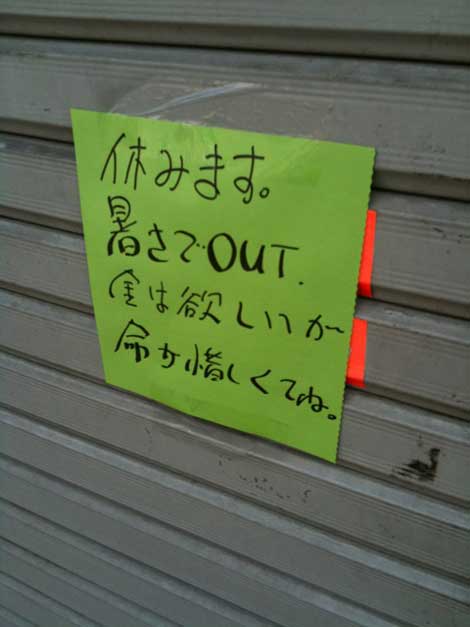 休みます。
暑さでOUT.
金は欲しいが
命が惜しくてね。